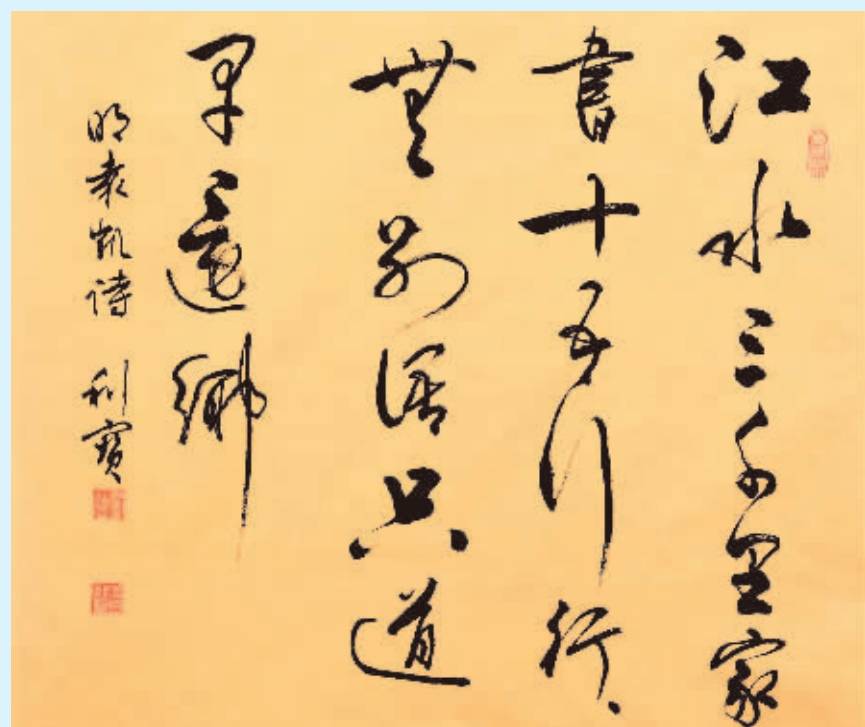 江水三千里家
書十五行行、
無別語只道
早還鄉
明袁凱詩 利寶